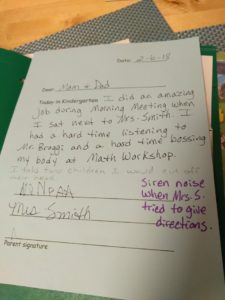 Date: 2-6-18
Dear Mom & Dad
Today in Kindergarten I did an amazing
job during Morning Meeting when
I sat next to Mrs. Smith. I
had a hard time listening to
Mr. Braggi and a hard time bossing
my body at Math Workshop.
I take two children I would cut off
their head
Siren noise
when Mrs. S.
tried to give
directions.
Mis Smisth
Parent signature